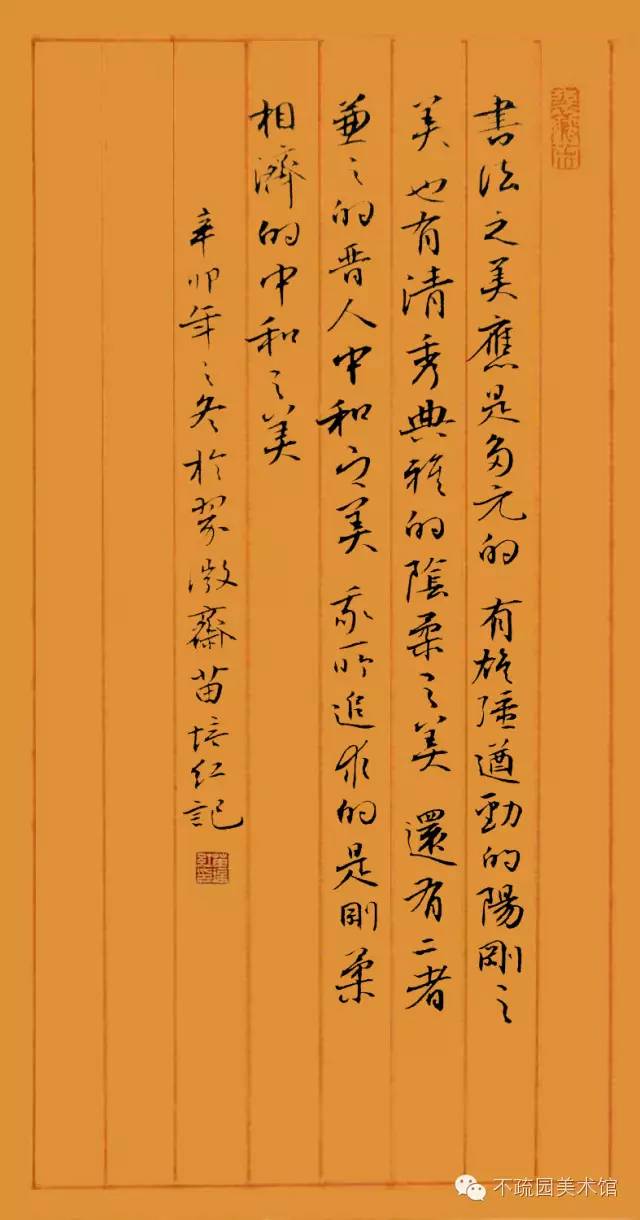 書法之美應是多元的 有雄强遒勁的陽剛之
美 也有清秀典雅的陰柔之美 還有二者
兼之的晋人中和之美 我所追求的是剛柔
相濟的中和之美
辛卯年之冬於翠微齋苗培红記
不疏园美术馆